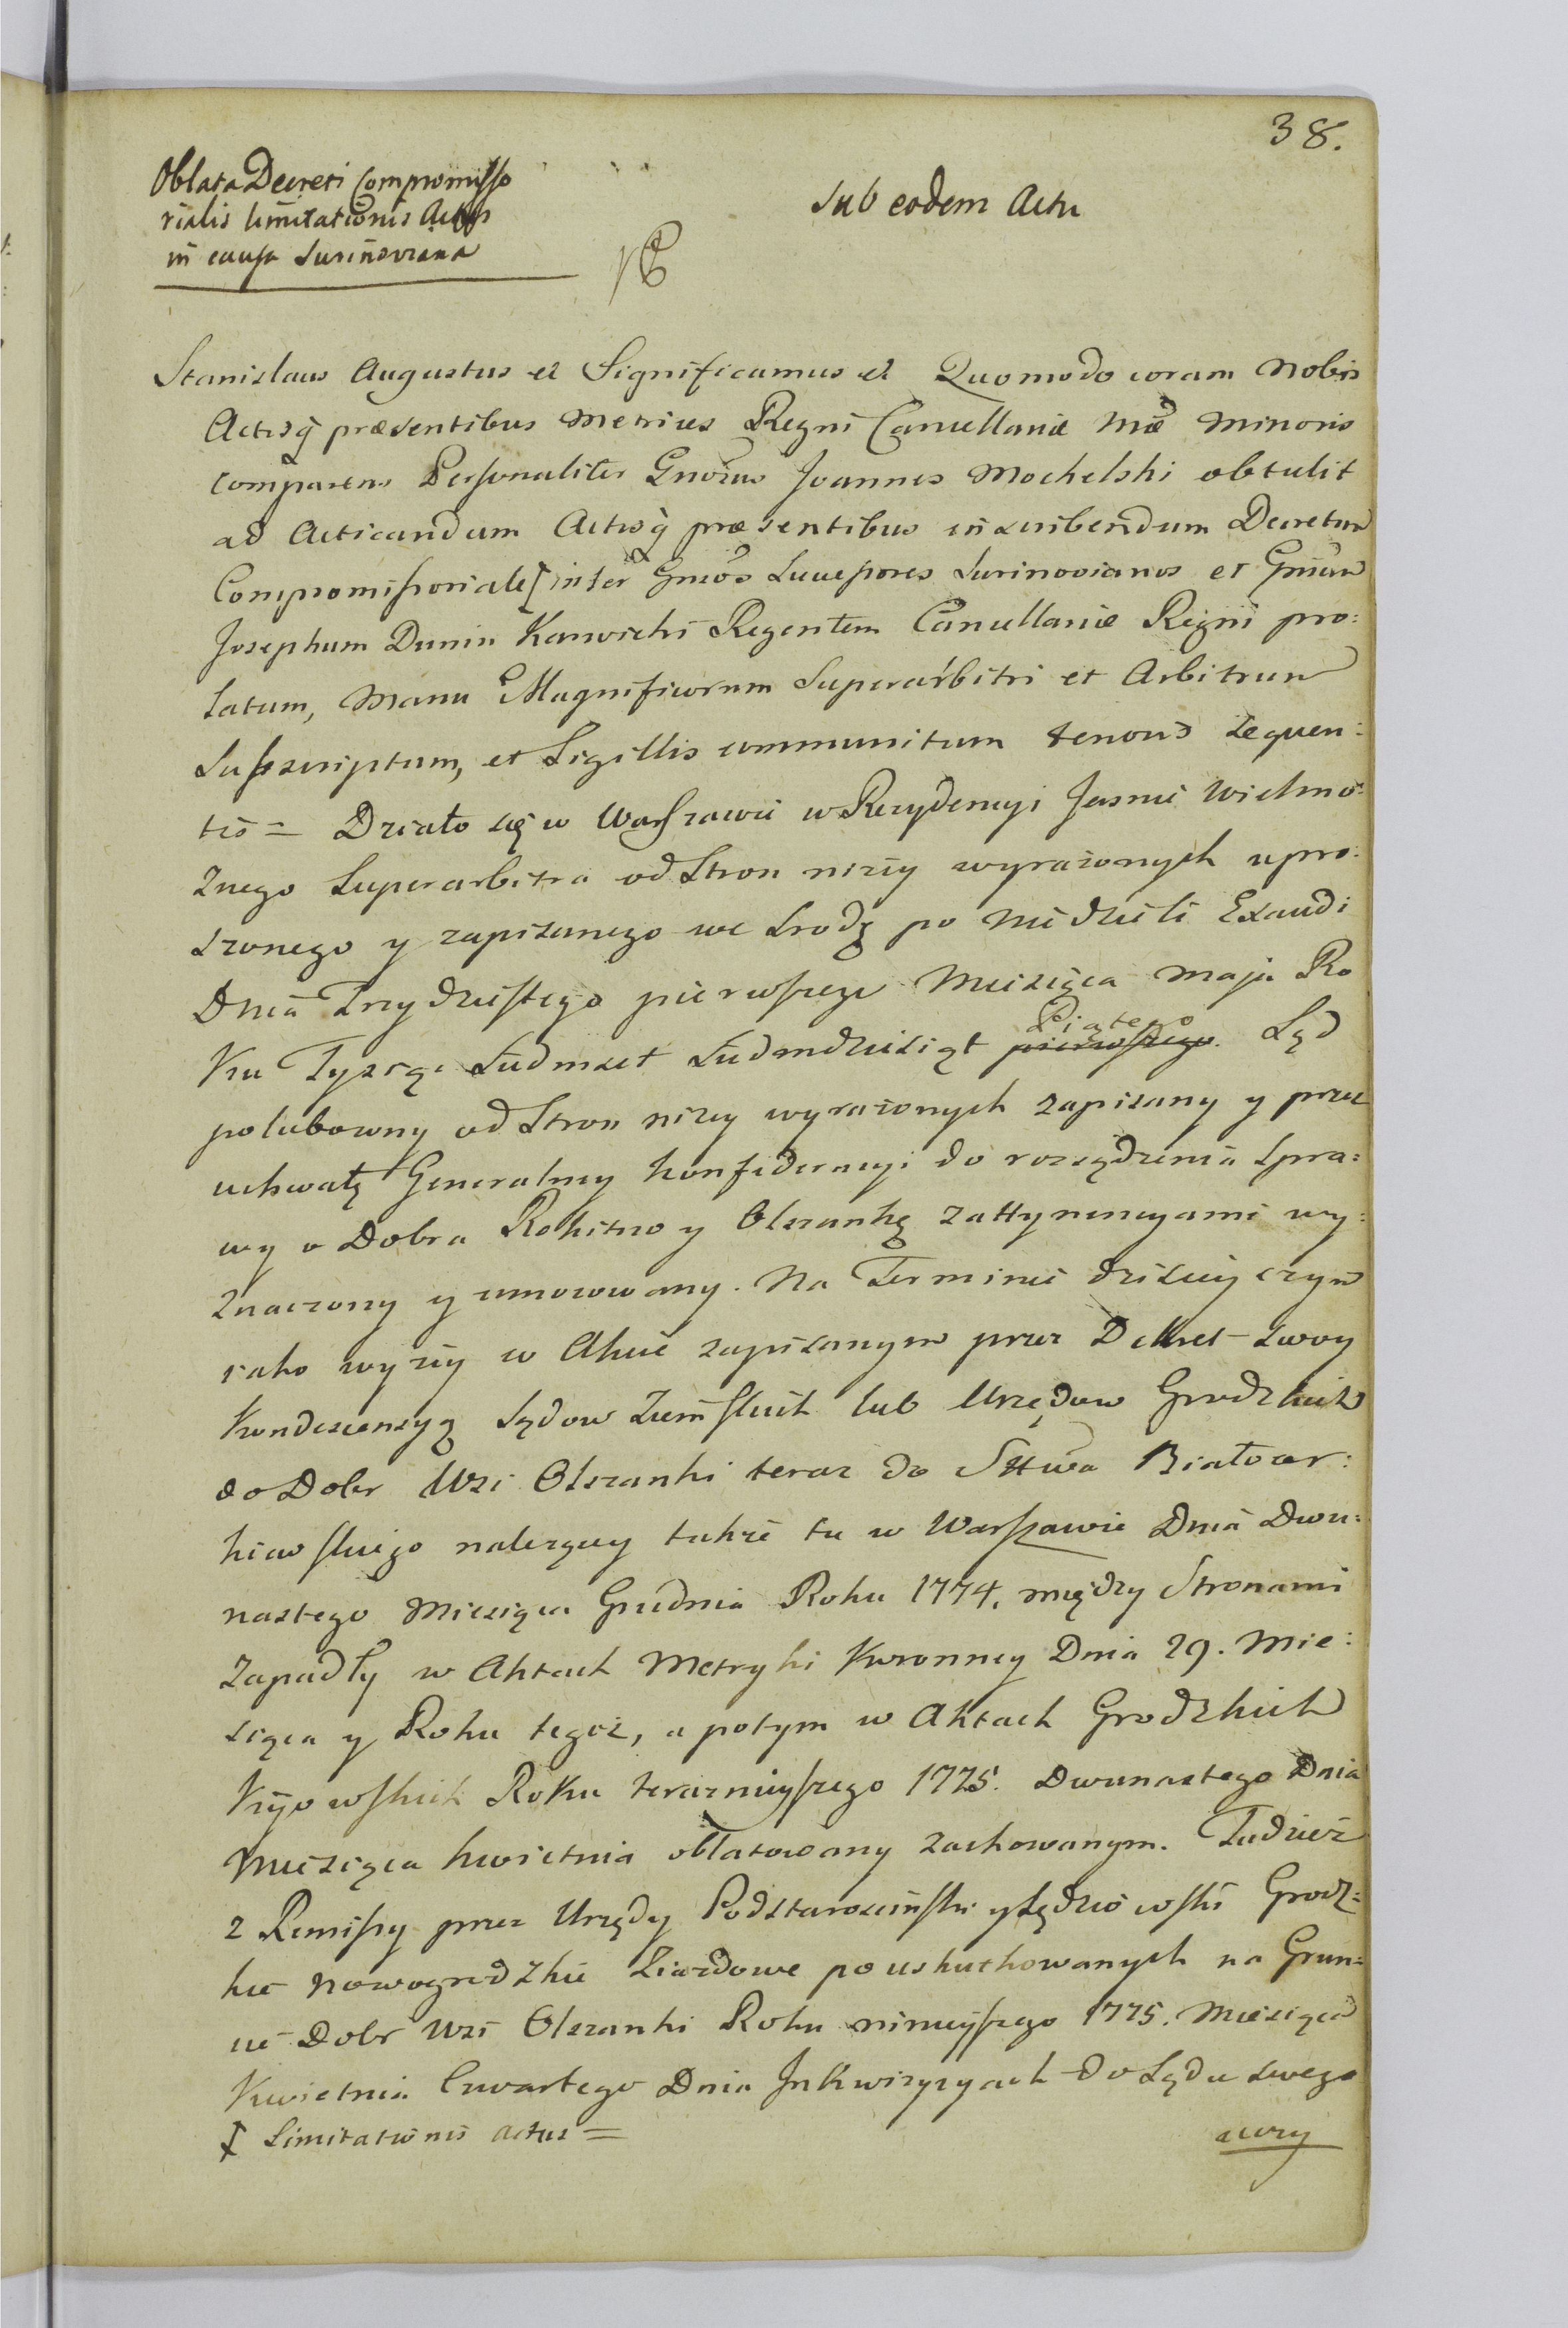 38.
Oblata Decreti Compromisso
rialis limitationis Actus
in causa Surinoviana
Sub eodem Actu
Stanislaus Augustus et Significamus et Quomodo coram Nobis
Actisq̃ præsentibus Metrices Regni Cancellariæ Mrĩæ Minoris
comparens Personaliter Gnõsus Joannes Mochelski obtulit
ad Acticandum Actisq̃ præsentibus inscribendum Decretum
Compromissoriale inter Gnõsos Successores Surinovianos et Gnõsum
Josephum Dunin Karwicki Regentem Cancellariæ Regni pro:
latum, Manu Magnificorum Superarbitri et Arbitrum
Subscriptum, et Sigillis communitum tenoris sequen:
tis = Działo się w Warszawie w Rezydencyi Jasnie Wielmo:
znego Superarbitra od Stron niżey wyrażonych upro:
szonego y zapisanego we Srodę po Niedzieli Exaudi
Dnia Trzydziestego pierwszego Miesiąca Maja Ro
Ku Tysiąc Siedmset Siedmdziesiąt pierwszego Piątego Sąd
polubowny od Stron niżey wyrażonych zapisany y przez
uchwałę Generalney Konfederacyi do rozsądzenia Spra:
wy o Dobra Rokitno y Olszankę z attynencyami wy:
znaczony y umocowany. Na Terminie dzisieyszym
iako wyżey w Akcie zapisanym przez Dekret swoy
Kondescensyą Sądow Ziemskich lub Urzędow Grodzkich
do Dobr Wsi Olszanki teraz do Sttwa Białocer:
kiewskiego należącey także tu w Warszawie Dnia Dwu:
nastego Miesiąca Grudnia Roku 1774. między Stronami
Zapadły w Aktach Metryki Koronney Dnia 29. Mie:
siąca y Roku tegoż, a potym w Aktach Grodzkich
Kijowskich Roku teraznieyszego 1775. Dwunastego Dnia
Miesiąca Kwietnia oblatowany zachowanym. Tudzież
z Remissy przez Urzędy Podstarościński y Sędziowski Grodz:
kie Nowogrodzkie Ziazdowe po uskutkowanych na Grun:
cie Dobr Wsi Olszanki Roku ninieyszego 1775. Miesiąca
Kwietnia Czwartego Dnia Inkwizycyach do Sądu swego
Limitationis Actus =